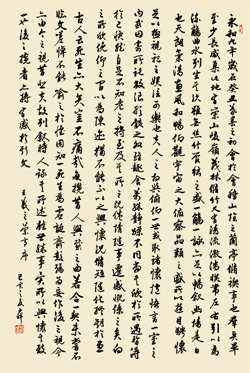 永和九年歲在癸丑暮春之初會于會稽山陰之蘭亭脩禊事也群賢畢至
少長咸集此地有崇山峻領茂林脩竹又有清流激湍映帶左右引以為
流觴曲水列坐其次雖無絲竹管弦之盛一觴一詠亦足以暢敘幽情是日
也天朗氣清惠風和暢仰觀宇宙之大俯察品類之盛所以遊目騁懷
足以極視聽之娛信可樂也夫人之相與俯仰一世或取諸懷抱悟言一室之
內或因寄所託放浪形骸之外雖趣舍萬殊靜躁不同當其欣於所遇暫得
於己快然自足不知老之將至及其所之既倦情隨事遷感慨係之矣向之
所欣俛仰之間以為陳迹猶不能不以之興懷況脩短隨化終期於盡
古人云死生亦大矣豈不痛哉每攬昔人興感之由若合一契未嘗不
臨文嗟悼不能喻之於懷固知一死生為虛誕齊彭殤為妄作後之視今
亦由今之視昔悲夫故列敘時人錄其所述雖世殊事異所以興懷其致
一也後之攬者亦將有感於斯文
王羲之蘭亭序